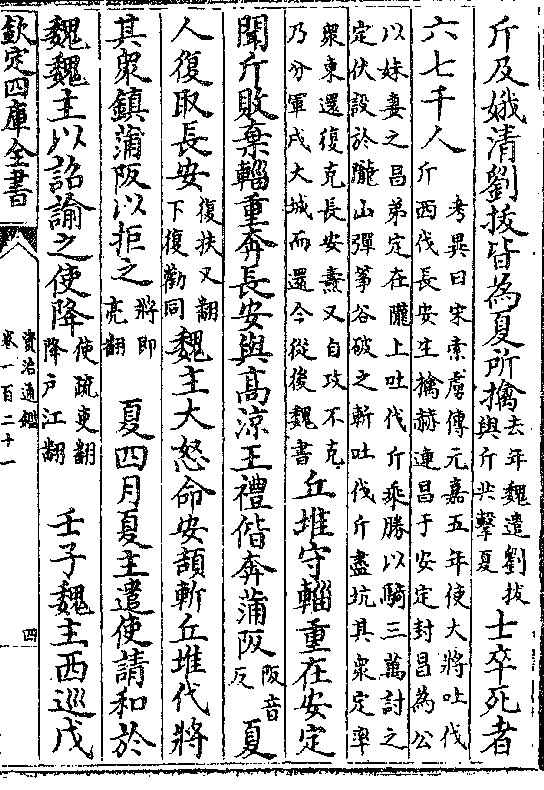 斤及娥清劉拔皆為夏所擒去年魏遣劉拔與斤共擊夏士卒死者
六七千人考異曰宋索虜傳元嘉五年使大將吐伐斤西伐長安生擒赫連昌于安定封昌為公
以妹妻之昌弟定在隴上吐伐斤乘勝以騎三萬討之定伏設於隴山彈箏谷破之斬吐伐斤盡坑其衆定率
衆東還復克長安燾又自攻不克乃分軍戍大城而還今從後魏書丘堆守輜重在安定
聞斤敗棄輜重奔長安與高涼王禮偕奔蒲阪阪音反夏
人復取長安復扶又翻下復勸同魏主大怒命安頡斬丘堆代將
其衆鎮蒲阪以拒之將即亮翻夏四月夏主遣使請和於
魏魏主以詔諭之使降使疏吏翻降戶江翻壬子魏主西巡戊
欽定四庫全書
資治通鑑
卷一百二十一
四